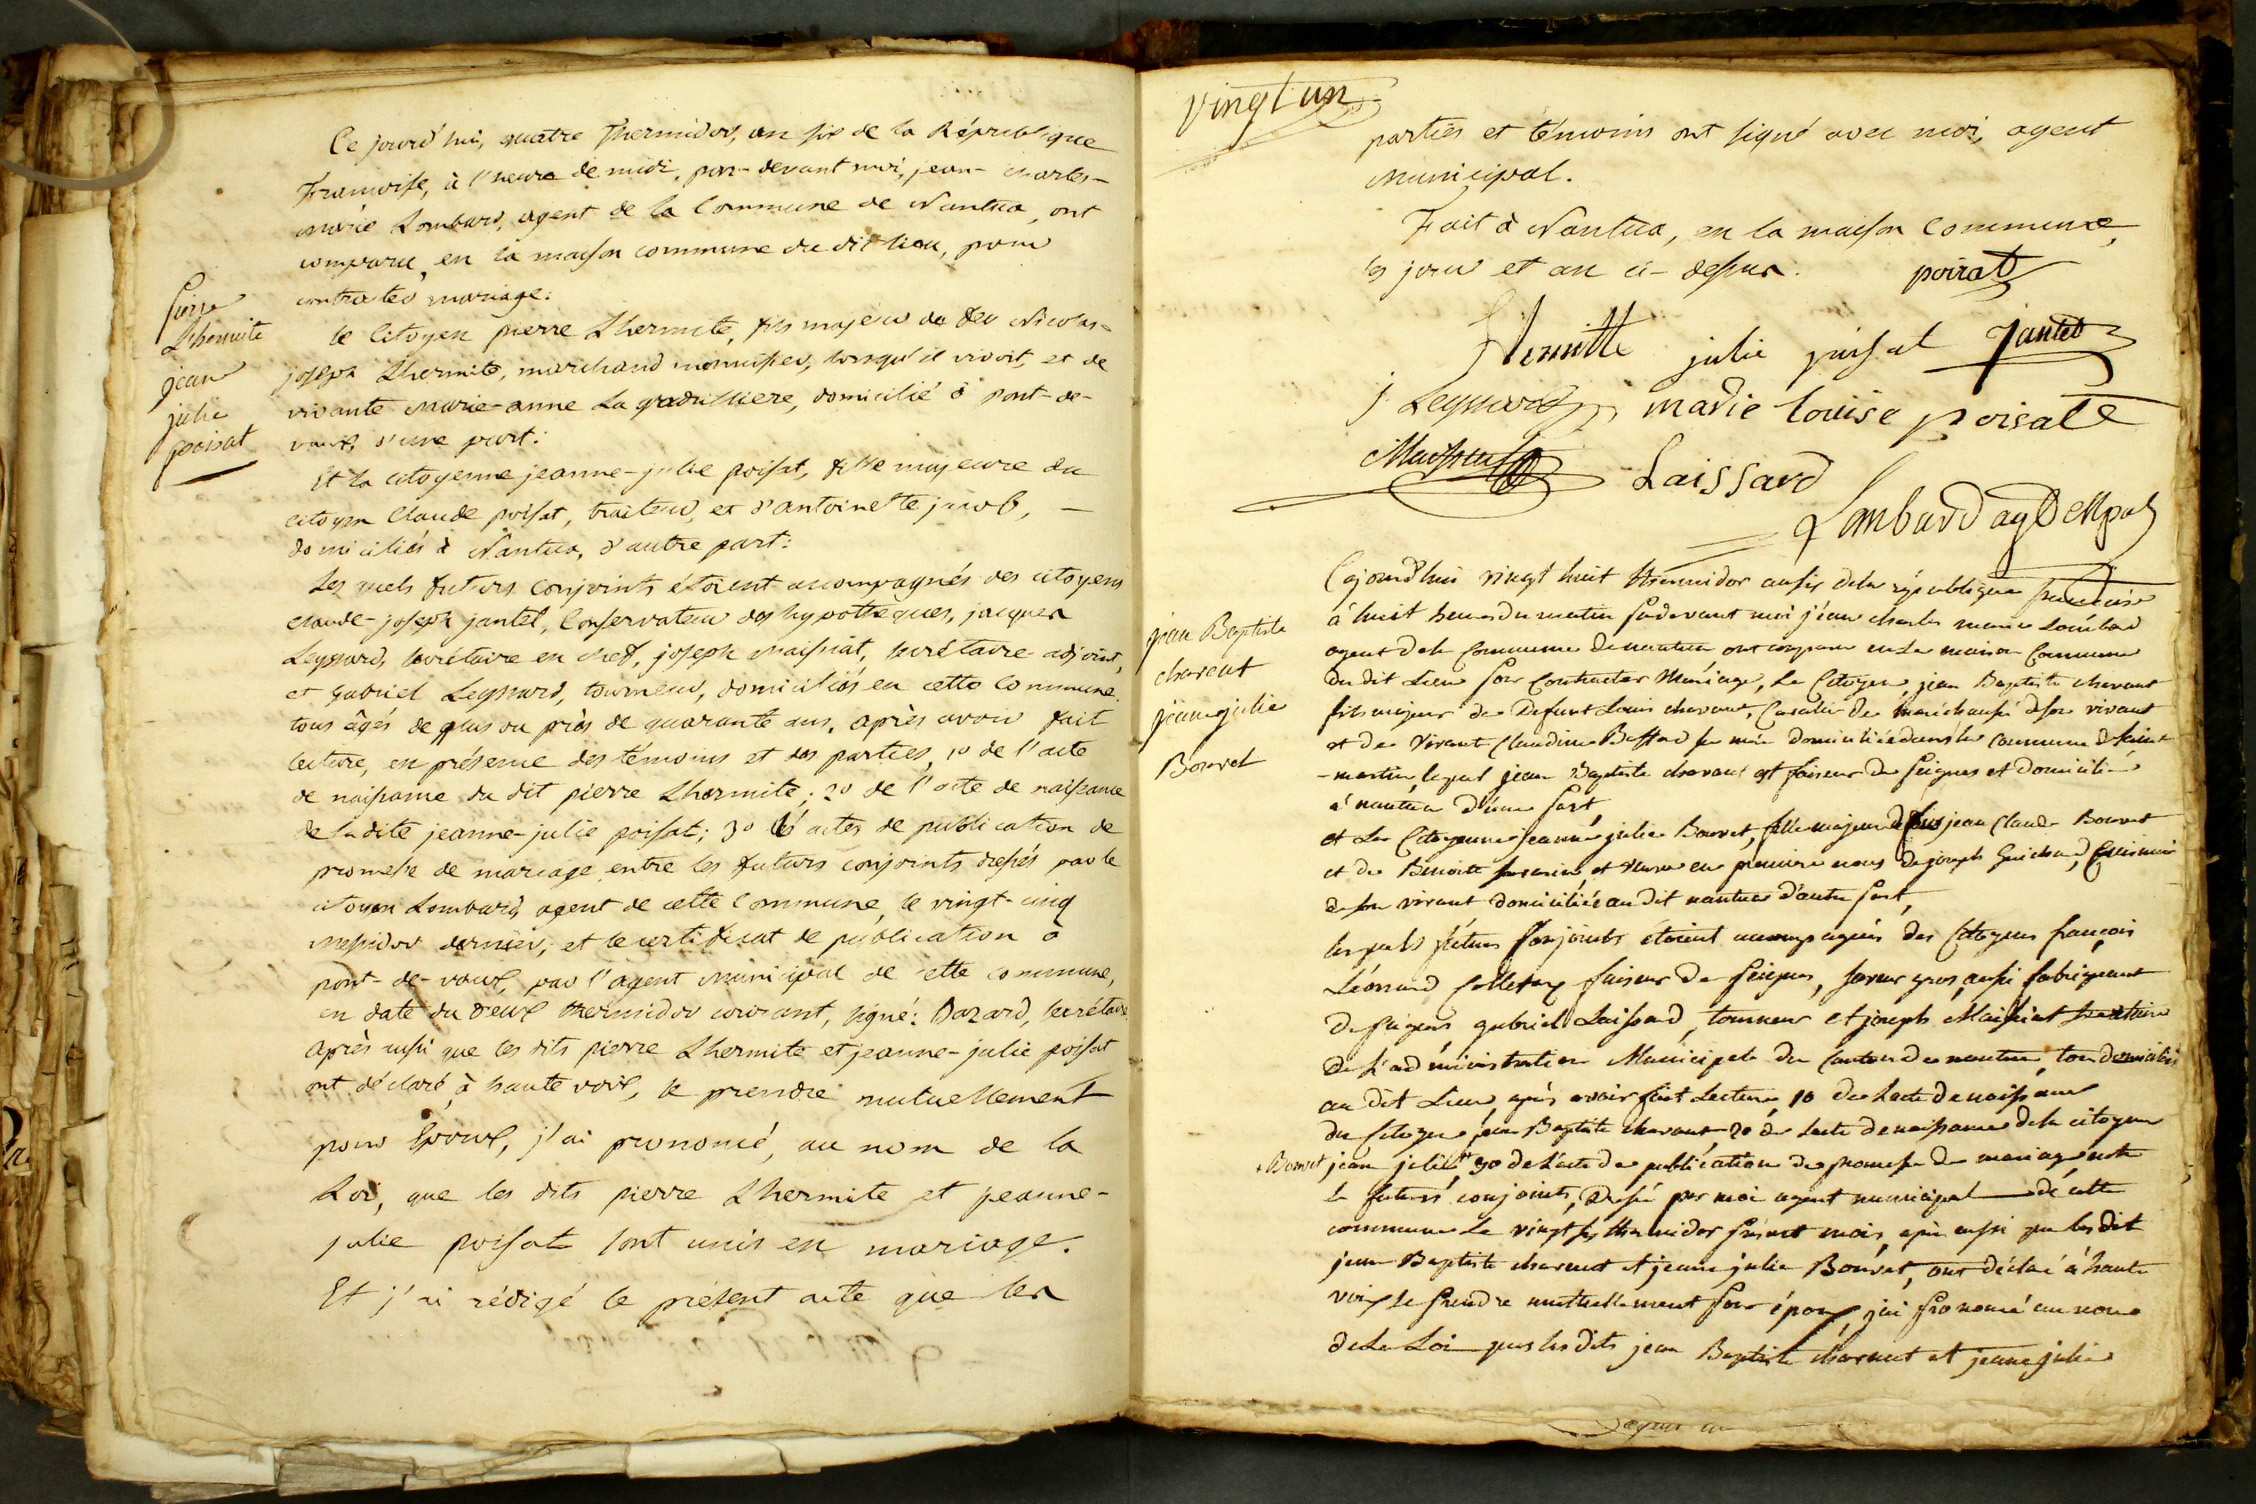 Ce jourd'hui, quatre Thermidor, an six de la République
Françoise, à l'heure de midi, par-devant moi, jean-charles-
marie Lombard, agent de la Commune de Nantua, ont
comparu, en la maison commune du dit lieu, pour
contracter mariage:
pierre
Lhermite
jean
julie
poisat
le Citoyen pierre Lhermite, fils majeur de feu Nicolas-
joseph Lhermite, marchand menuisier, lorsqu'il vivoit, et de
vivante Marie-anne La, domicilié à Pont-de-
vaux, d'une part:
Et la citoyenne jeanne-julie poisat, fille majeure du
citoyen Claude poisat, traiteur, et d'antoinette jacob,
domiciliés à Nantua, d'autre part:
Les quels futurs Conjoints étoient accompagnés des citoyens
claude-joseph jantet, Conservateur des hypothèques, jacques
Leyssard, secrétaire en chef, joseph Maissiat, secrétaire adjoint,
et gabriel Leyssard, tourneur, domiciliés en cette Commune
tous âgés de plus ou près de quarante ans. Après avoir fait
lecture, en présence des témoins et des parties, 1o de l'acte
de naissance du dit pierre Lhermite; 2o de l'acte de naissance
de la dite jeanne-julie poisat; 3o les actes de publication de
promesse de mariage entre les futurs conjoints dressés par le
citoyen Lombard, agent de cette Commune, le vingt-cinq
messidor dernier, et le certificat de publication à
pont-de-vaux, par l'agent Municipal de cette commune,
en date du deux thermidor courant, signé: Bazard, secrétaire.
Après aussi que les dits pierre Lhermite et jeanne-julie poisat
ont déclaré, à haute voix, se prendre mutuellement
pour Epoux, j'ai prononcé, au nom de la
Loi, que les dits pierre Lhermite et jeanne-
julie poisat sont unis en mariage.
Et j'ai rédigé le présent acte que les
Vingt un
parties et témoins ont signé avec moi, agent
Municipal.
Fait à Nantua, en la maison Commune,
les jour et an ci-dessus. poirat
Lhermitte julie poisat Jantet
j Leyssard marie louise poisate
Maissiat Laissard
Lombard agt Mpal
jean Baptiste
charent
jeanne julie
Bouvet
Cejourd'hui vingt huit thermidor an six de la république française
à huit heures du matin pardevant moi jean charles marie Lombard
agent de la Commune de nantua, ont comparu en la maison Commune
du dit Lieu pour Contracter Mariage, Le Citoyen jean Baptiste charent
fils majeur de Defunt Louis charent, Cavalier de maréchaussé de son vivant
et de Vivante Claudine Buffard sa mère domiciliée dans la Commune de Saint
-martin, lequel jean Baptiste charent est faiseur de peignes et domicilié
à nantua d'une part,
et La Citoyenne jeanne julie Bouvet, fille majeure de feu jean Claude Bouvet
et de Benoitte et veuve en première noces de joseph Guichard, Cuisinier
de son vivant domiciliée au dit nantua d'autre part,
les quels futurs Conjoints étoient accompagnés des Citoyens françois
Léonard Colletaz faiseur de peignes, gros aussi fabriquant
de peignes gabriel Laissard, tourneur et joseph Maissiat
de L'administration Municipale du Canton de nantua, tous domiciliés
au dit Lieu, après avoir fait Lecture 1o de L'acte de naissance
du Citoyen jean Baptiste charent, 2o de Lacte de naissance de la citoyenne
+ Bouvet jean julie + 3o de L'acte de publication de promesse de mariage entre
les futurs conjoints, dressé par moi agent municipal de cette
commune Le vingt six thermidor présent mois, après aussi que les dit
jean Baptiste charent et jeanne julie Bouvet, ont déclaré à haute
voix se prendre mutuellement pour époux, j'ai prononcé au nom
de La Loi que les dits jean Baptiste charent et jeanne julie